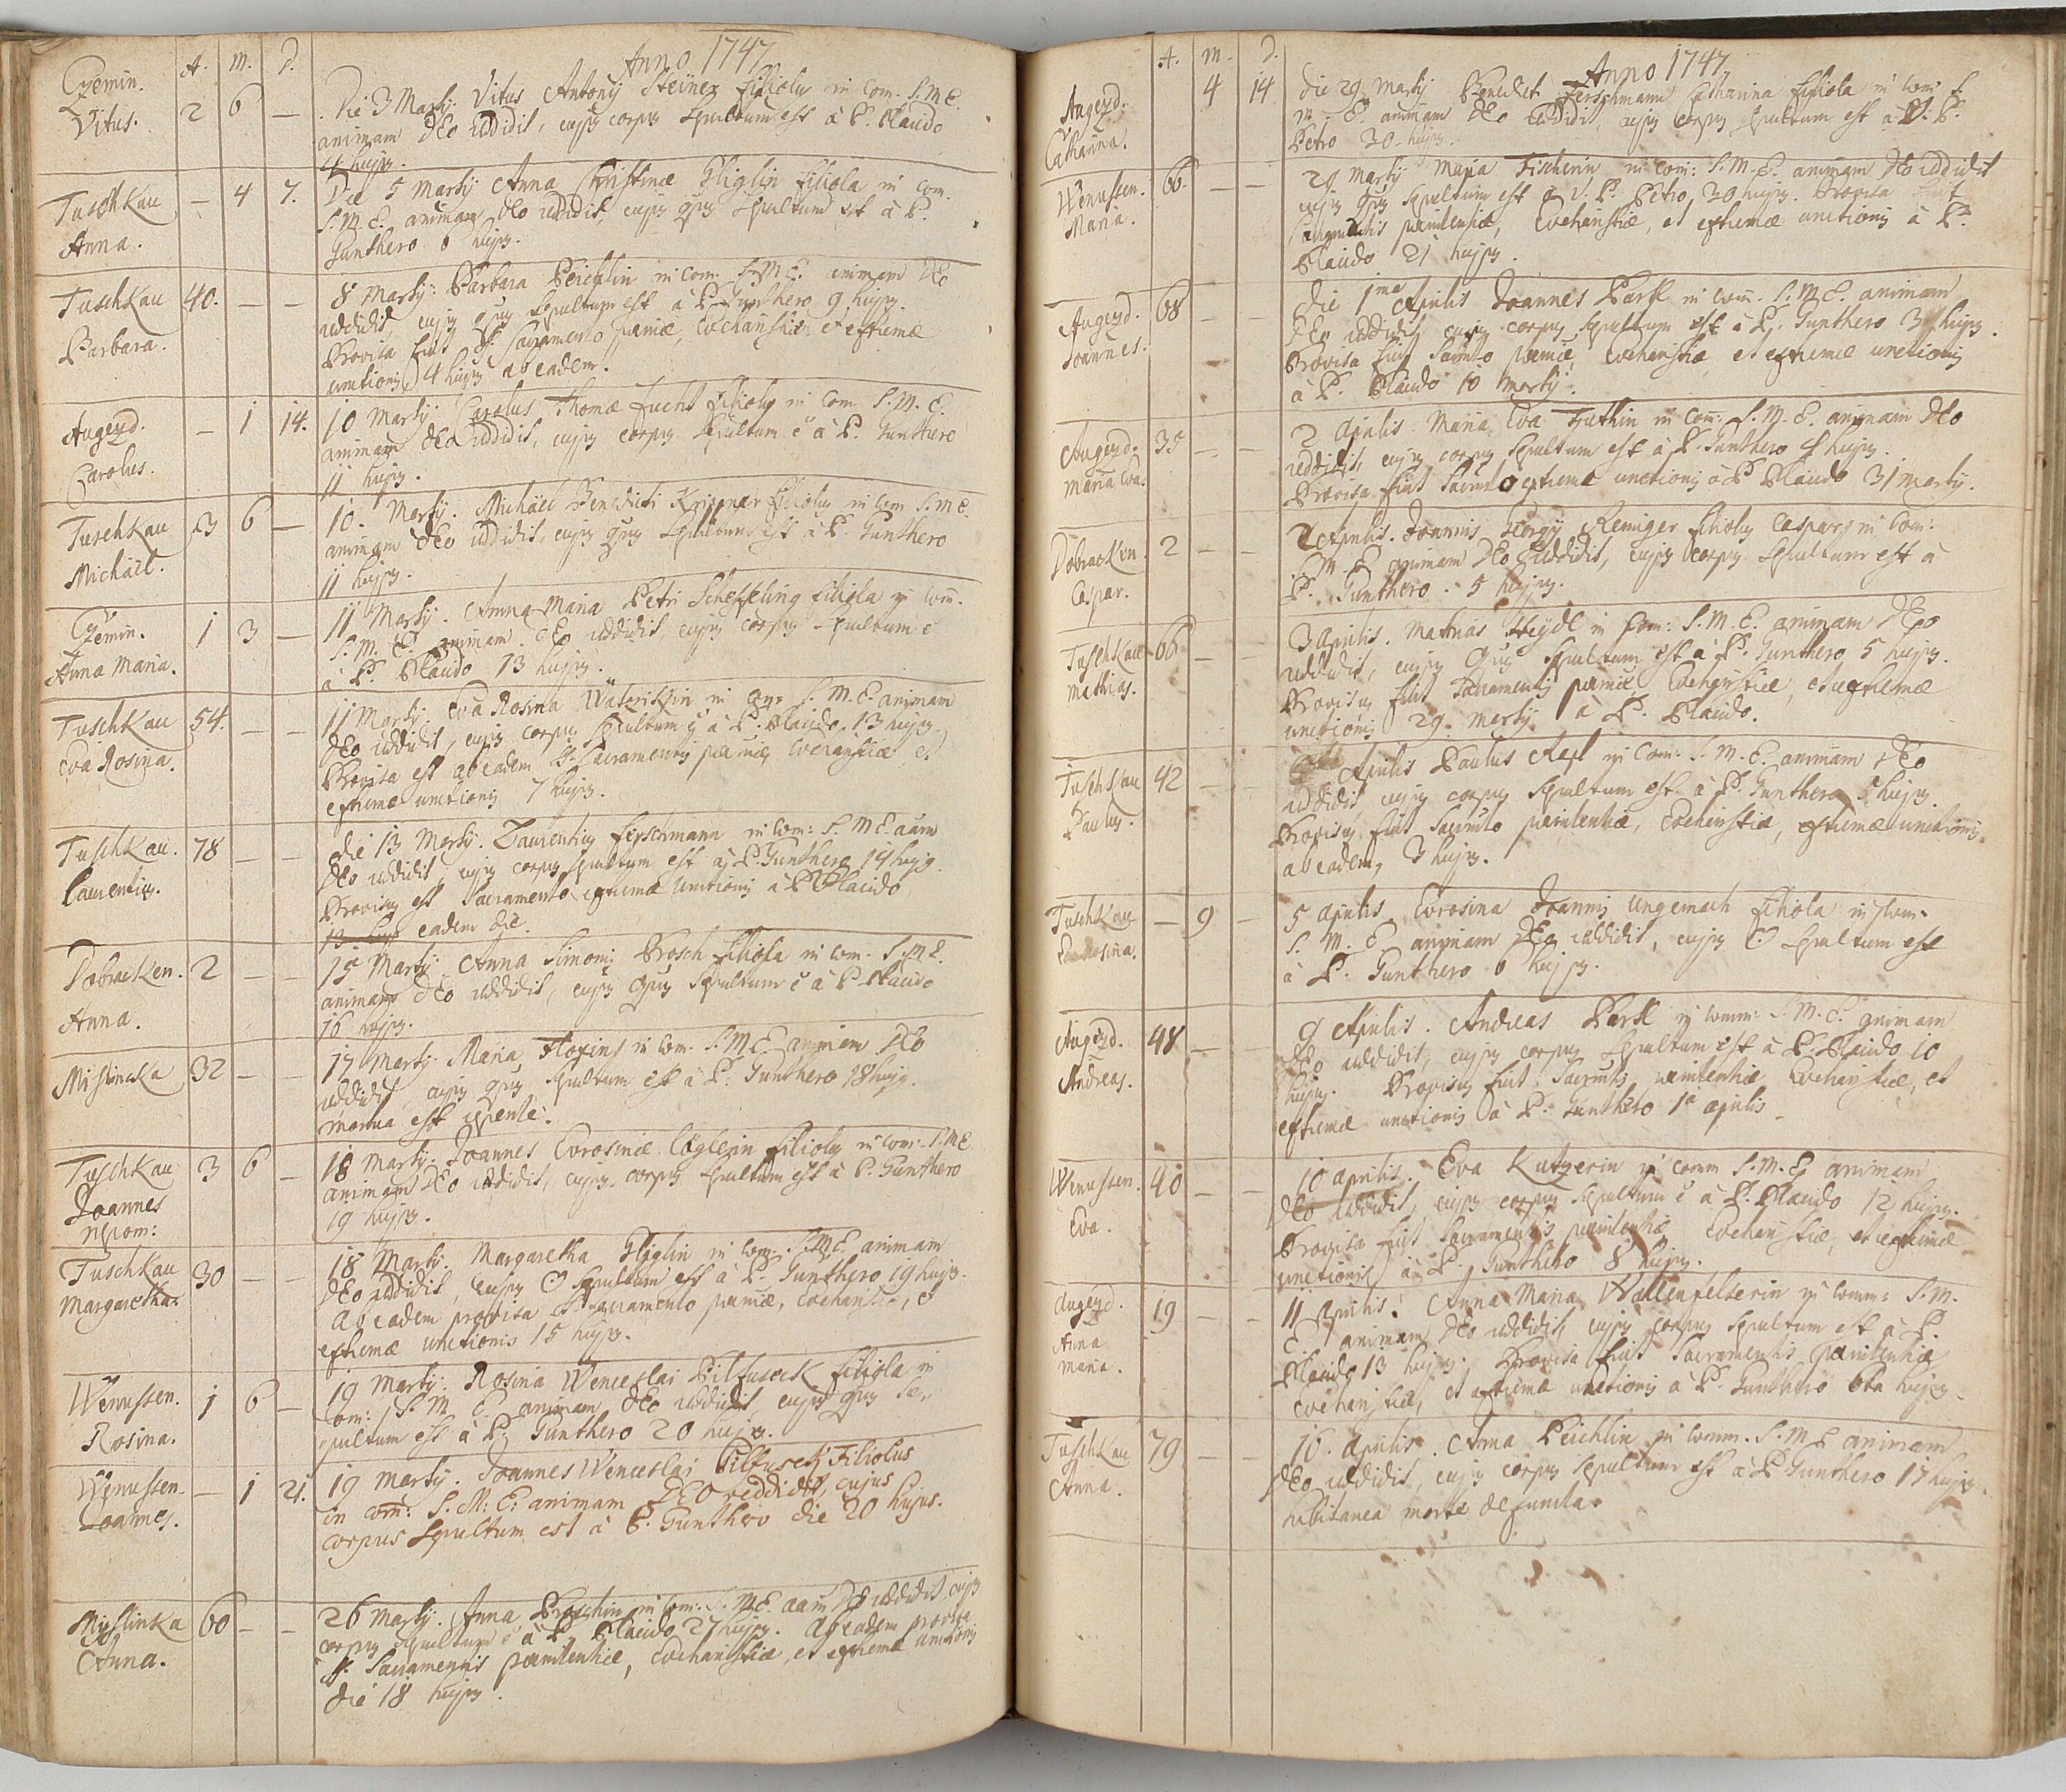 Anno 1747
A. m. d.
Czemin. Vitus. 2 6 —
Die 3 Martij. Vitus Antonij Steiner filiolus in Com. S. M. E.
animam Deo reddidit, cujus corpus sepultum est à P. Placido
4 hujus.
Tuschkau Anna. — 4 7.
Die 5 Martij Anna Christinæ Gliglin filiola in Com.
S. M. E. animam Deo reddidit, cujus qus sepultum est à P.
Gunthero 6 hujus.
Tuschkau Barbara. 40. — —
8 Martij. Barbara Peichlin in Com. S. M. E. animam Deo
reddidit, cujus qus sepultum est à P. Gunthero 9 hujus.
Provisa fuit SS. Sacramento pæniæ, Eucharistiæ et extremæ
unctionis 4 hujus ab eadem.
Augezd. Carolus. — 1 14.
10 Martij. Carolus Thomæ Fuchs filiolus in Com S. M. E.
animam Deo reddidit, cujus corpus sepultum ē à P. Gunthero
11 hujus.
Tuschkau Michäel. 3 6 —
10. Martij. Michäel Benedicti Krippner filiolus in Com S. M. E.
animam Deo reddidit, cujus qus sepultum est à P. Gunthero
11 hujus.
Czemin. Anna Maria. 1 3 —
11 Martij. Anna Maria Petri Scheffeling filiola in Com.
S. M. E. animam Deo reddidit, cujus corpus sepultum ē
à P. Placido 13 hujus.
Tuschkau Eva Rosina. 54. — —
11 Martij. Eva Rosina in S. M. E. animam
Deo reddidit, cujus corpus sepultum ē à P. Placido 13 hujus.
Provisa est ab eadem SS. Sacramentis pæniæ, Eucharistiæ, et
extremæ unctionis 7 hujus.
Tuschkau. Laurentius. 78 — —
Die 13 Martij. Laurentius Ferschmann in Com: S. M. E. aām
Deo reddidit, cujus corpus sepultum est à P. Gunthero 14 hujus.
Provisus est Sacramento extremæ Unctionis à P. Placido
eadem die.
Dobracken. Anna. 2 — —
15 Martij. Anna Simonis Prosch filiola in Com. S. M. E.
animam Deo reddidit, cujus qus sepultum ē à P. Placido
16 hujus.
Mislincka 32 — —
17 Martij. Maria in Com. S. M. E. animam Deo
reddidit, cujus qus sepultum est à P. Gunthero 18 hujus.
mortua est repentè.
Tuschkau Joannes Nepom: 3 6 —
18 Martij. Joannes Evrosinæ Löglerin filiolus in Com: S. M. E.
animam Deo reddidit, cujus corpus sepultum est à P. Gunthero
19 hujus.
Tuschkau Margaretha. 30 — —
18 Martij. Margaretha Gliglin in Com. S. M. E. animam
Deo reddidit, cujus C sepultum est à P. Gunthero 19 hujus.
Ab eadem provisa est Sacramento pæniæ, Eucharistiæ, et
extremæ unctionis 15 hujus.
Wenussen. Rosina. 1 6 —
19 Martij. Rosina Wenceslai Piltuseck filiola in
Com: S. M. E. animam Deo reddidit cujus qus se-
pultum est à P. Gunthero 20 hujus.
Wenussen. Joannes. — 1 21.
19 Martij. Joannes Wenceslai Piltuseck Filiolus
in Com: S: M: E: animam DEO reddidit, cujus
corpus sepultum est à P. Gunthero die 20 hujus.
Mislinka Anna. 60 — —
26 Martij. Anna Proschin in Com: S. M. E. aām Deo reddidit cujus
corpus sepultum ē à P. Placido 27 hujus. Ab eadem provisa
SS. Sacramentis pænitentiæ, Eucharistiæ, et extremæ unctionis
die 18 hujus.
Anno 1747
A. m. d.
Augezd. Catharina. 4 14
Die 29 Martij Benedict Ferschmann Catharina filiola in Com S.
M. E. animam Deo reddidit, cujus corpus sepultum est à V. P.
Petro 30 hujus.
Wenussen. Maria. 66. — —
29 Martij Maria Fischerin in Com: S. M. E. animam Deo reddidit
cujus qus sepultum est à V. P. Petro 30 hujus. Provisa fuit
Sacramentis pænitentiæ, Eucharistiæ, et extremæ unctionis à P.
Placido 21 hujus.
Augezd. Joannes. 68 — —
Die 1ma Aprilis Joannes Partl in Com. S. M. E. animam
Deo reddidit, cujus corpus sepultum est à P. Gunthero 3 hujus.
Provisa fuit Sacrmto pæniæ Eucharistiæ, et extremæ unctionis
à P. Placido 10 Martij.
Augezd. Maria Eva. 35 — —
2 Aprilis Maria Eva in Com: S. M. E. animam Deo
reddidit, cujus corpus sepultum est à P. Gunthero 4 hujus.
Provisa fuit Sacrmto extremæ unctionis à P. Placido 31 Martij.
Dobracken. Caspar. 2 — —
2 Aprilis. Joannis Georgij Remiger filiolus Casparus in Com:
S. M. E. animam Deo reddidit, cujus corpus sepultum est à
P. Gunthero. 5 hujus.
Tuschkau Mathias. 66 — —
3 Aprilis. Mathias Heÿdl in Com: S. M. E. animam Deo
reddidit, cujus qus sepultum est à P. Gunthero 5 hujus.
Provisus fuit Sacramentis pæniæ Eucharistiæ, et extremæ
unctionis 29. Martij à P. Placido.
Tuschkau Paulus. 42 — —
Aprilis Paulus in Com: S. M. E. animam Deo
reddidit, cujus corpus sepultum est à P. Gunthero 5 hujus.
Provisus fuit Sacrmto pænitentiæ, Eucharistiæ, extremæ unctionis,
ab eadem, 3 hujus.
Tuschkau — 9 —
5 Aprilis Evrosina Joannis Ungemach filiola in Com.
S. M. E. animam Deo reddidit, cujus C sepultum est
à P. Gunthero 6 hujus.
Augezd. Andreas. 48 — —
9 Aprilis. Andreas Partl in Comm: S. M. E. animam
Deo reddidit, cujus corpus sepultum est à P. Placido 10
hujus. Provisus fuit Sacrmtis pænitentiæ Eucharistiæ, et
extremæ unctionis à P. Gunthero 1a Aprilis.
Wenussen. Eva. 40 — —
10 Aprilis. Eva Kutzerin in Comm S. M. E. animam
Deo reddidit, cujus corpus sepultum ē à P. Placido 12 hujus.
Provisa fuit Sacramentis pænitentiæ, Eucharistiæ, et extremæ
unctionis à P. Gunthero 8 hujus.
Augezd. Anna Maria. 19 — —
11 Aprilis. Anna Maria Wallenfelserin in Comm: S. M.
E. animam Deo reddidit, cujus corpus sepultum est à P.
Placido 13 hujus. Provisa fuit Sacramentis pænitentiæ
Eucharistiæ, et extremæ unctionis à P. Gunthero 6ta hujus.
Tuschkau Anna. 79 — —
16. Aprilis. Anna Peichlin in Comm. S. M. E. animam
Deo reddidit, cujus corpus sepultum est à P. Gunthero 17 hujus.
subitanea morte defuncta.